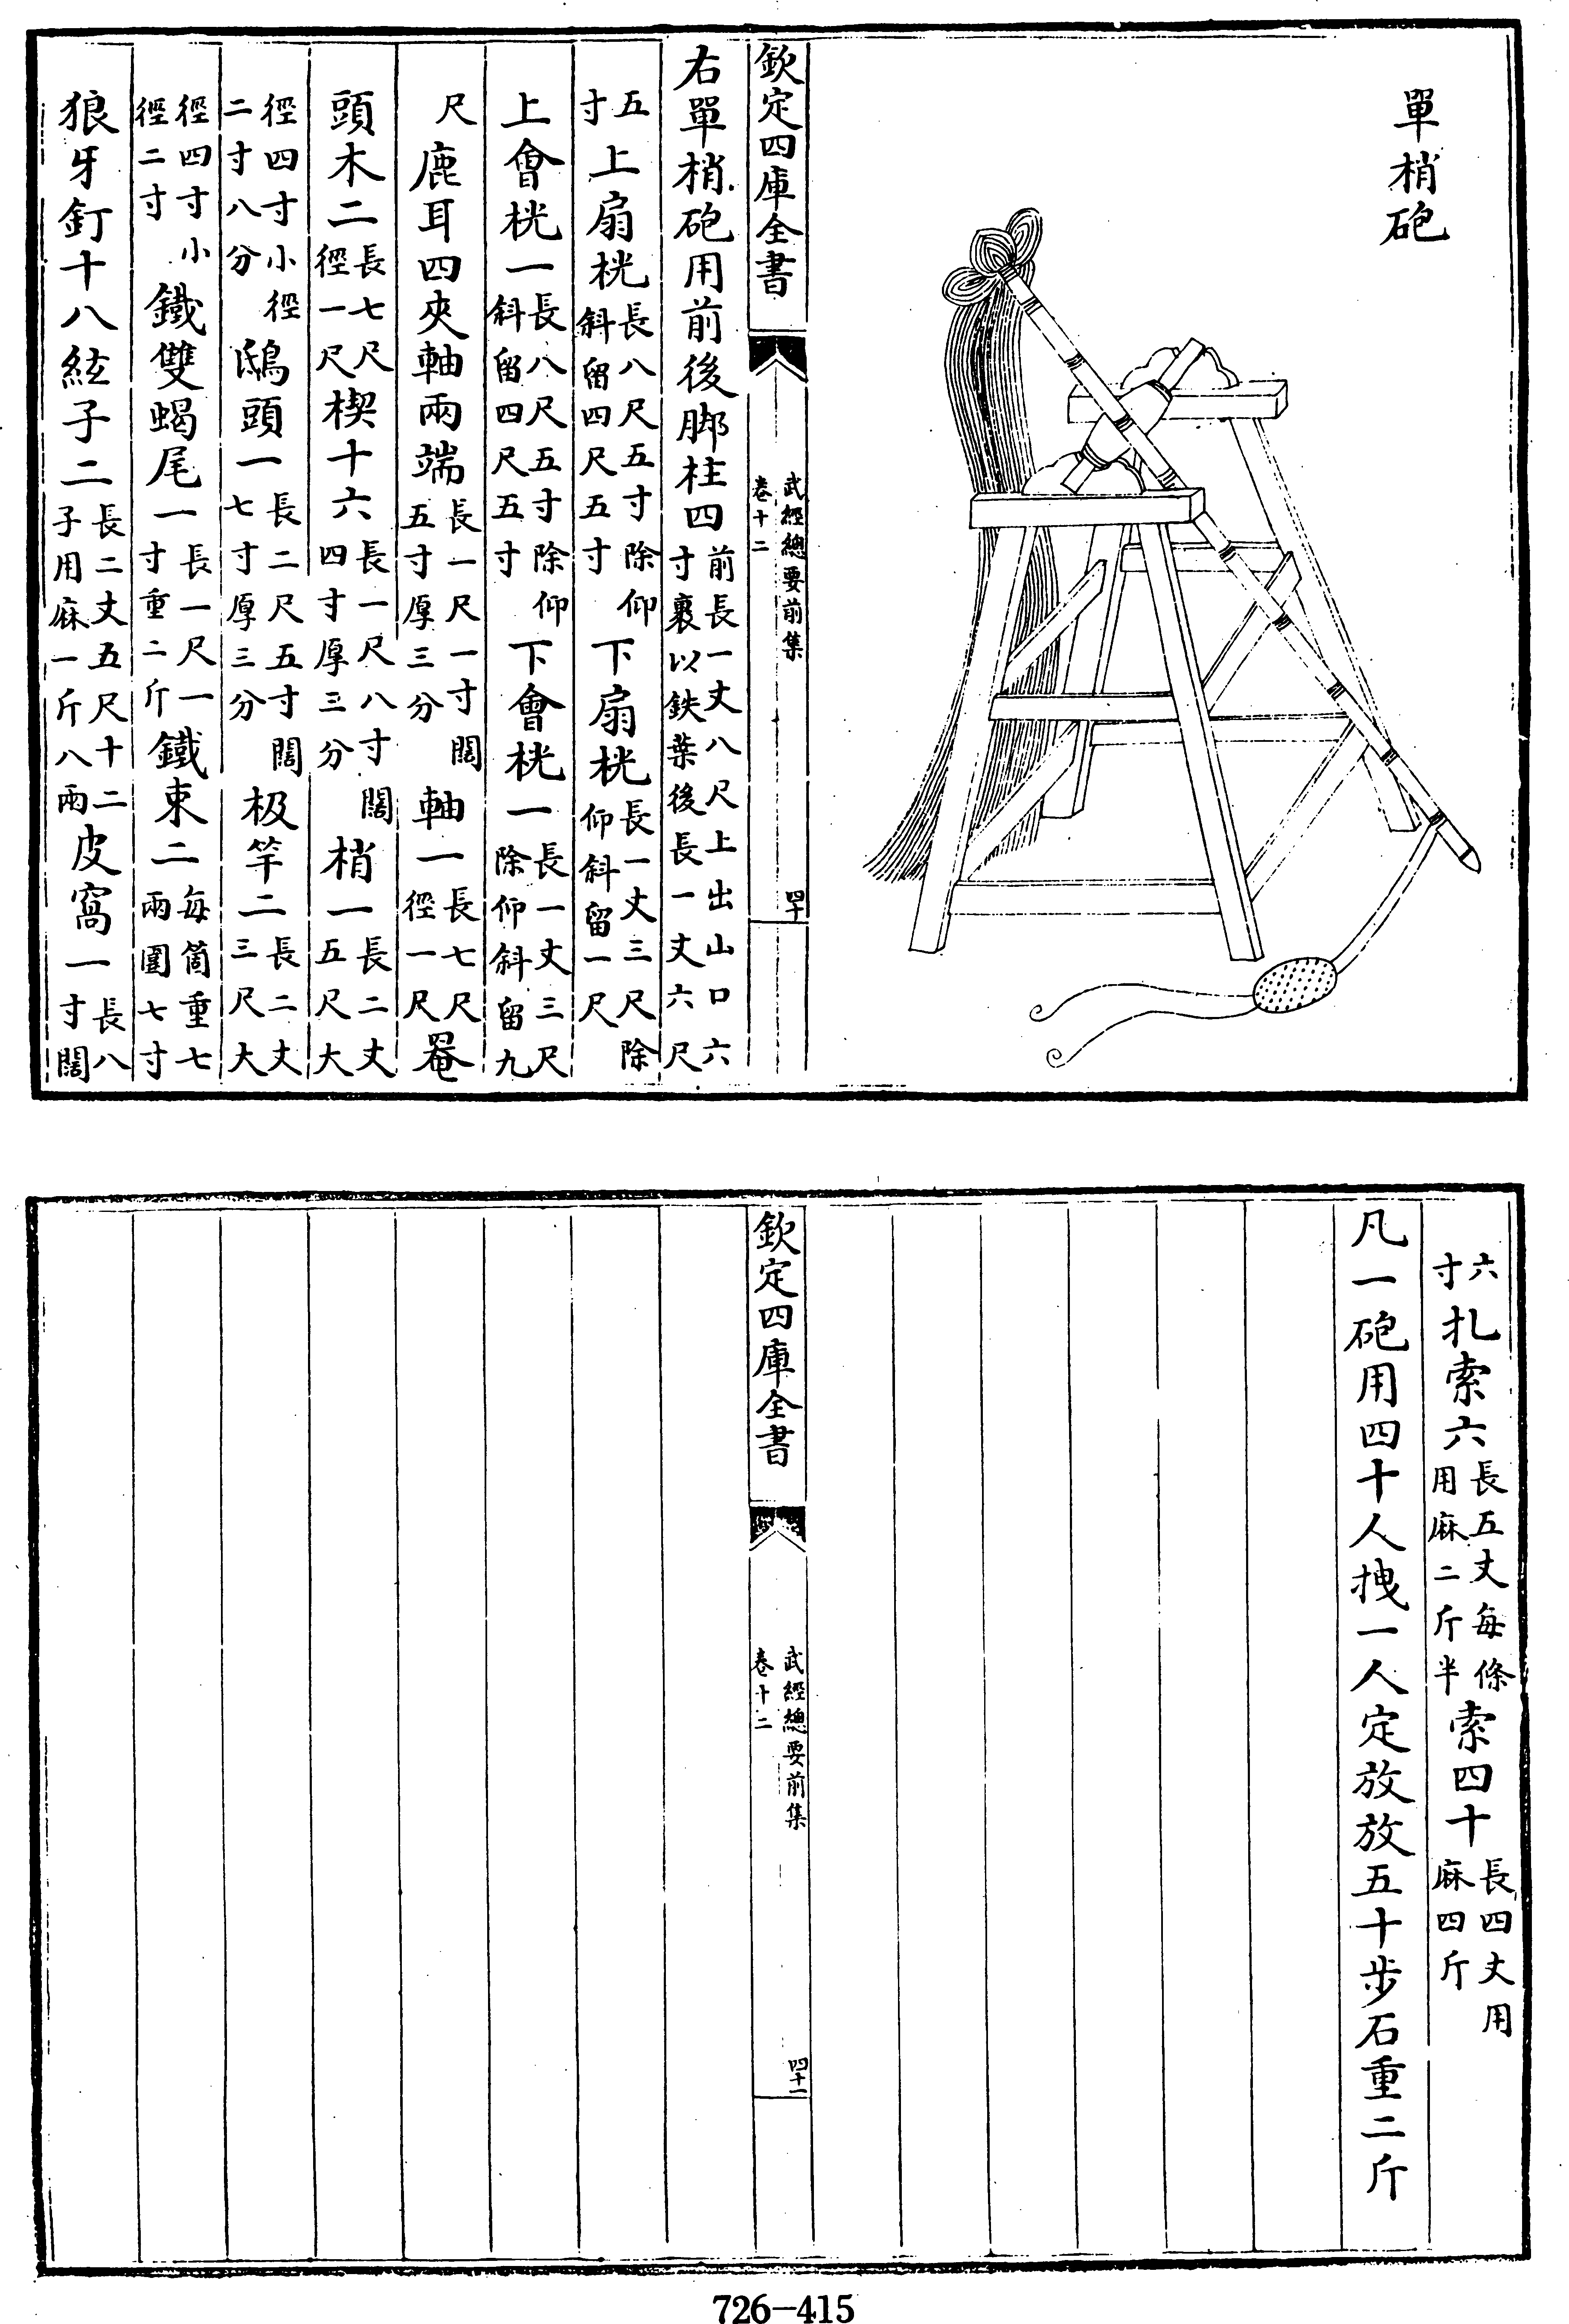 單梢砲
欽定四庫全書
武經總要前集
卷十二
四十
右單梢砲用前後脚柱四前長一丈八尺上出山口六寸裹以鉄葉後長一丈六尺
五寸上扇桄長八尺五寸除仰斜留四尺五寸下扇桄長一丈三尺除仰斜留一尺
上會桄一長八尺五寸除仰斜留四尺五寸下會桄一長一丈三尺除仰斜留九
尺鹿耳四夾軸兩端長一尺一寸闊五寸厚三分軸一長七尺徑一尺罨
頭木二長七尺徑一尺楔十六長一尺八寸闊四寸厚三分梢一長二丈五尺大
徑四寸小徑二寸八分鴟頭一長二尺五寸闊七寸厚三分极竿二長二丈三尺大
徑四寸小徑二寸鐵雙蝎尾一長一尺一寸重二斤鐵束二每箇重七兩圍七寸
狼牙釘十八絃子二長二丈五尺十二子用麻一斤八兩皮窩一長八寸闊
六寸扎索六長五丈每條用麻二斤半索四十長四丈用麻四斤
凡一砲用四十人拽一人定放放五十步石重二斤
欽定四庫全書
武經總要前集
卷十二
四十一
726-415